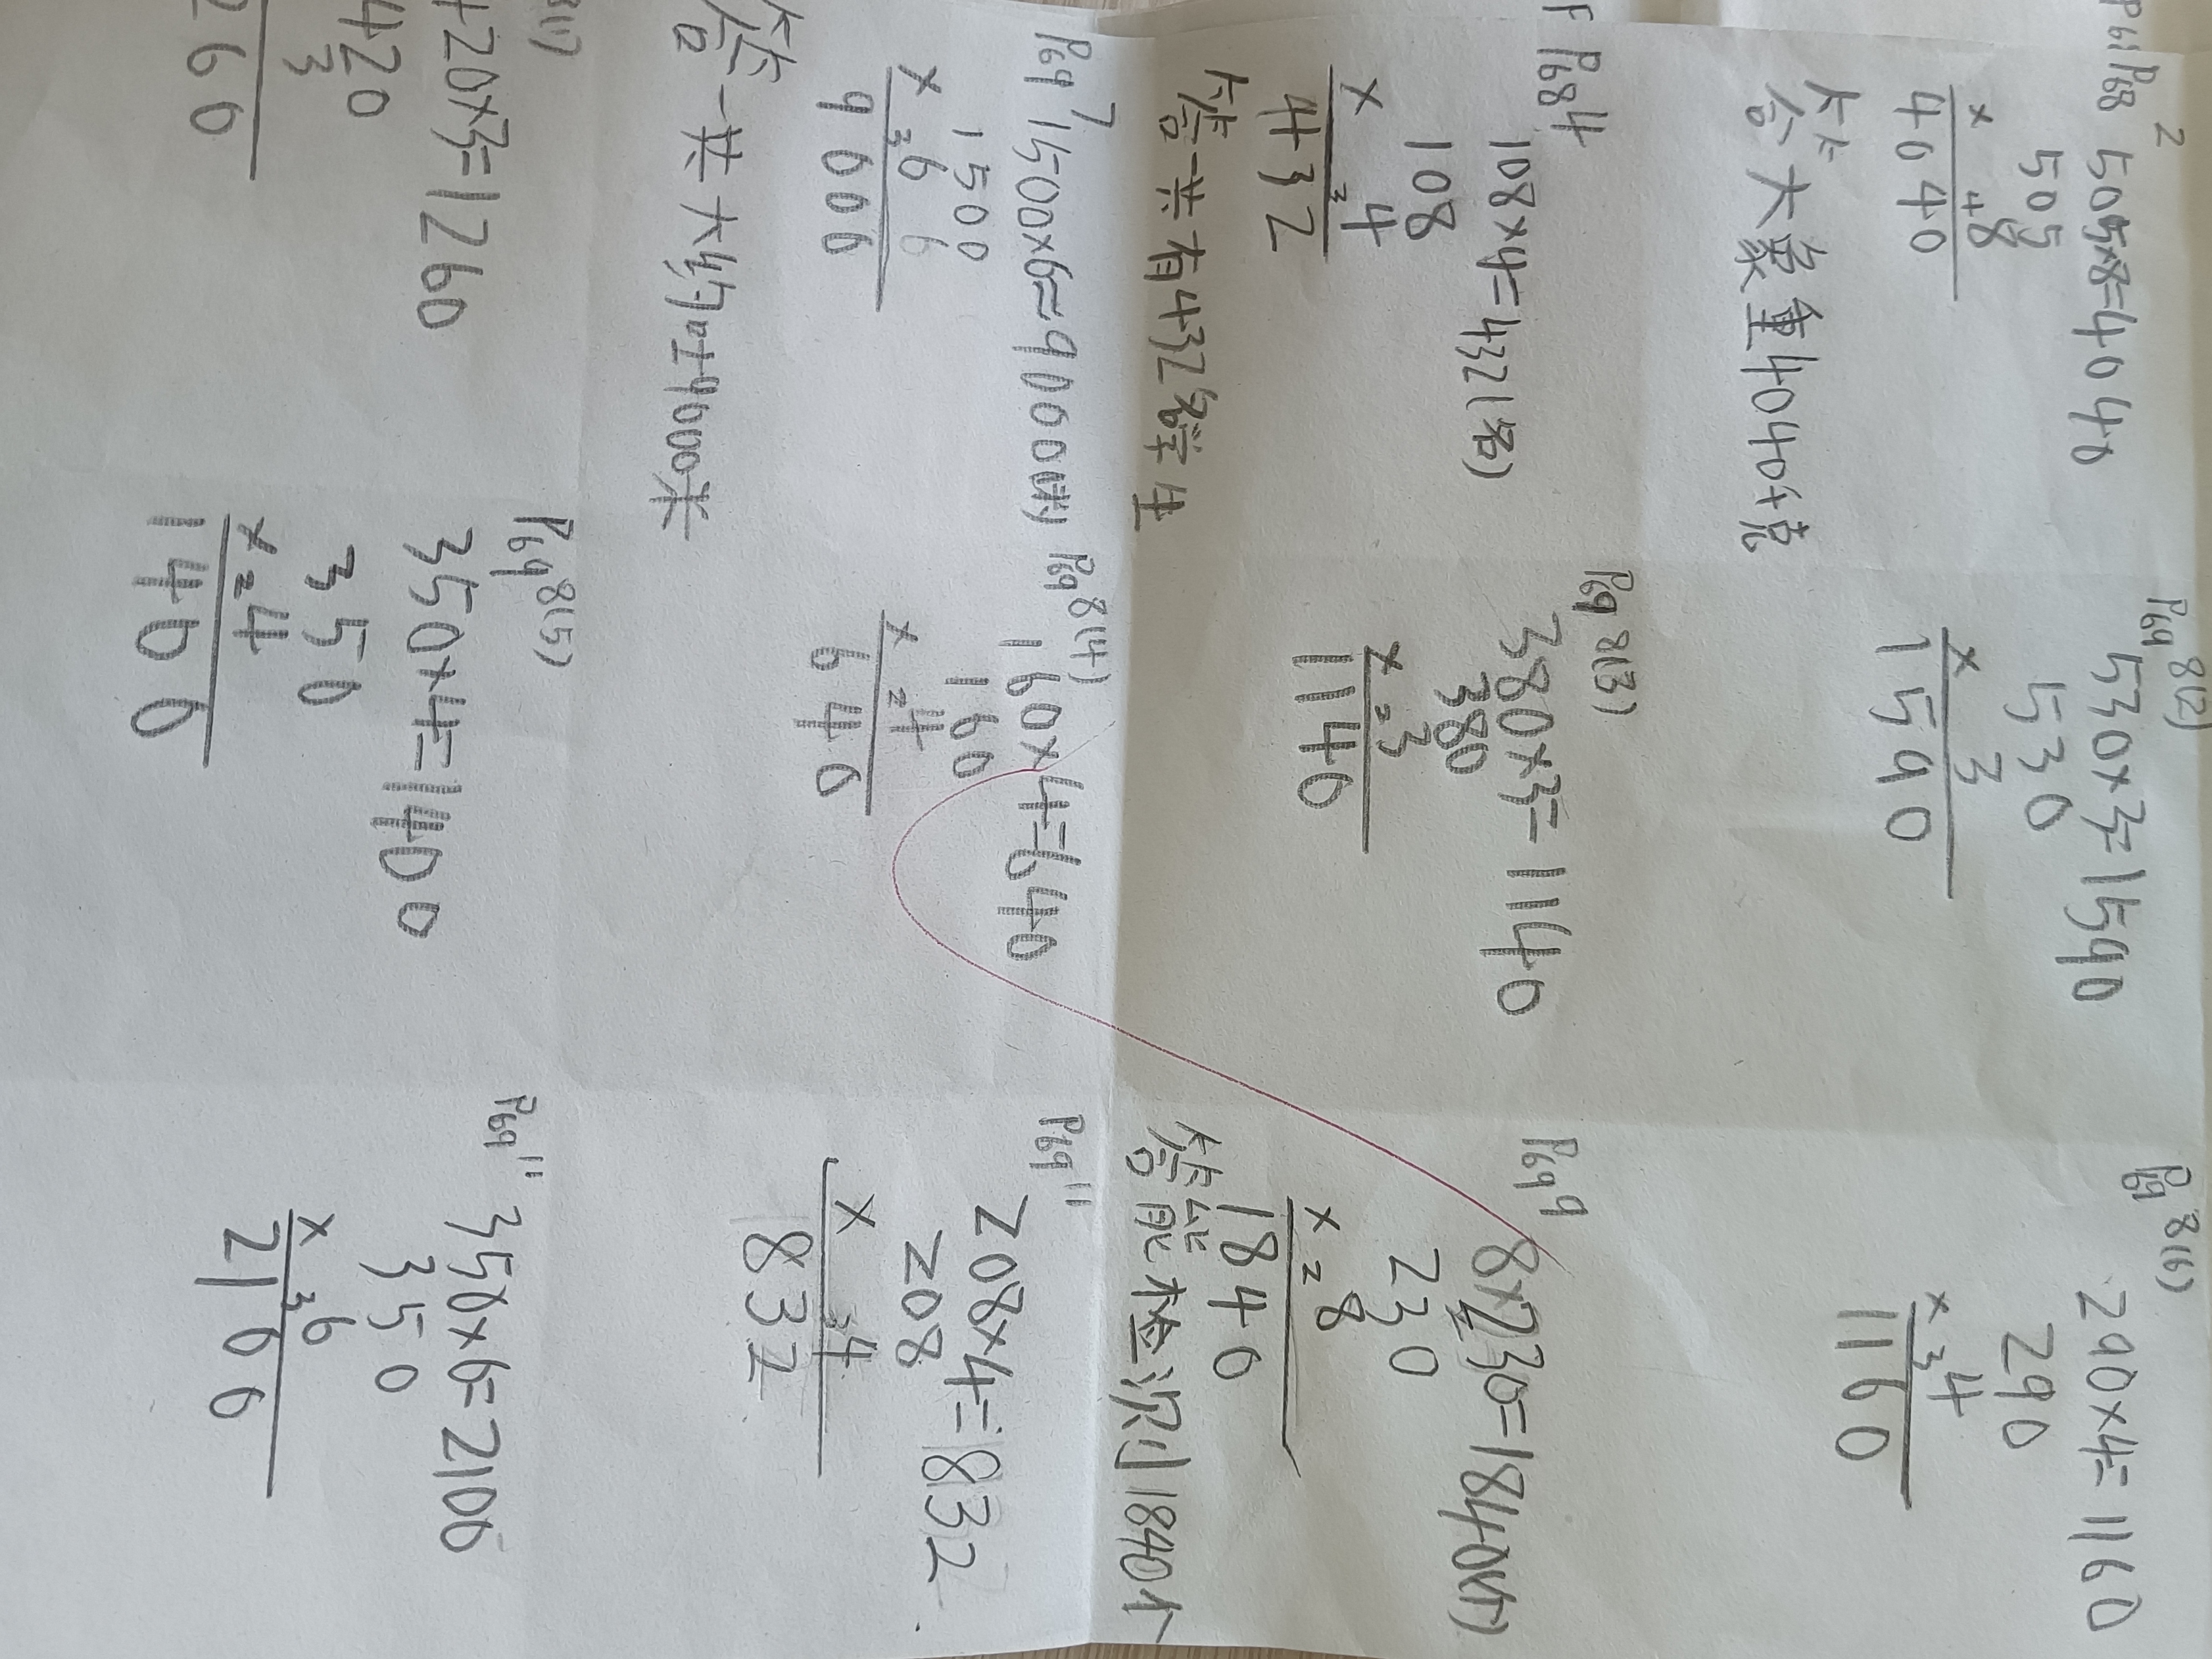 P68 2
505×8=4040
505
× 48
4040
答大象重4040千克
P69 8(2)
530×3=1590
530
× 3
1590
P69 8(6)
290×4=1160
290
× 34
1160
P68 4
108×4=432(名)
108
× 34
432
答一共有432名学生
P69 8(3)
380×3=1140
380
× 23
1140
P69 9
8×230=1840(个)
230
× 28
1840
答能检测1840个
P69 7
1500×6=9000(米)
1500
× 36
9000
答一共大约9000米
P69 8(4)
160×4=640
160
× 24
640
P69 11
208×4=832
208
× 34
832
8(1)
420×3=1260
420
3
260
P69 8(5)
350×4=1400
350
× 24
1400
P69 11
350×6=2100
350
× 36
2100